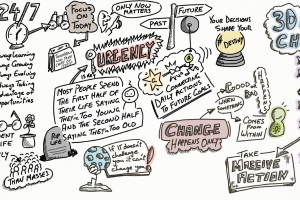 24/7
FOCUS
ON
TODAY
ONLY NOW
MATTERS
PAST
FUTURE
YOUR DECISIONS
SHAPE YOUR
#DESTINY
3D
CH
URGENCY
MOST PEOPLE SPEND
THE FIRST HALF OF
THEIR LIFE SAYING
THEY'RE TOO YOUNG
AND THE SECOND HALF
SAYING THEY'RE TOO OLD
CONNECTING
DAILY ACTIONS
TO FUTURE GOALS
GOOD
BAD
WHEN
SOMETHING
CHANGE
HAPPENS ONLY
COMES FROM
WITHIN
RIP
LIFE
IF IT DOESN'T
CHALLENGE
YOU IT CAN'T
CHANGE YOU
THAN MASSES
TAKE
MASSIVE
ACTION